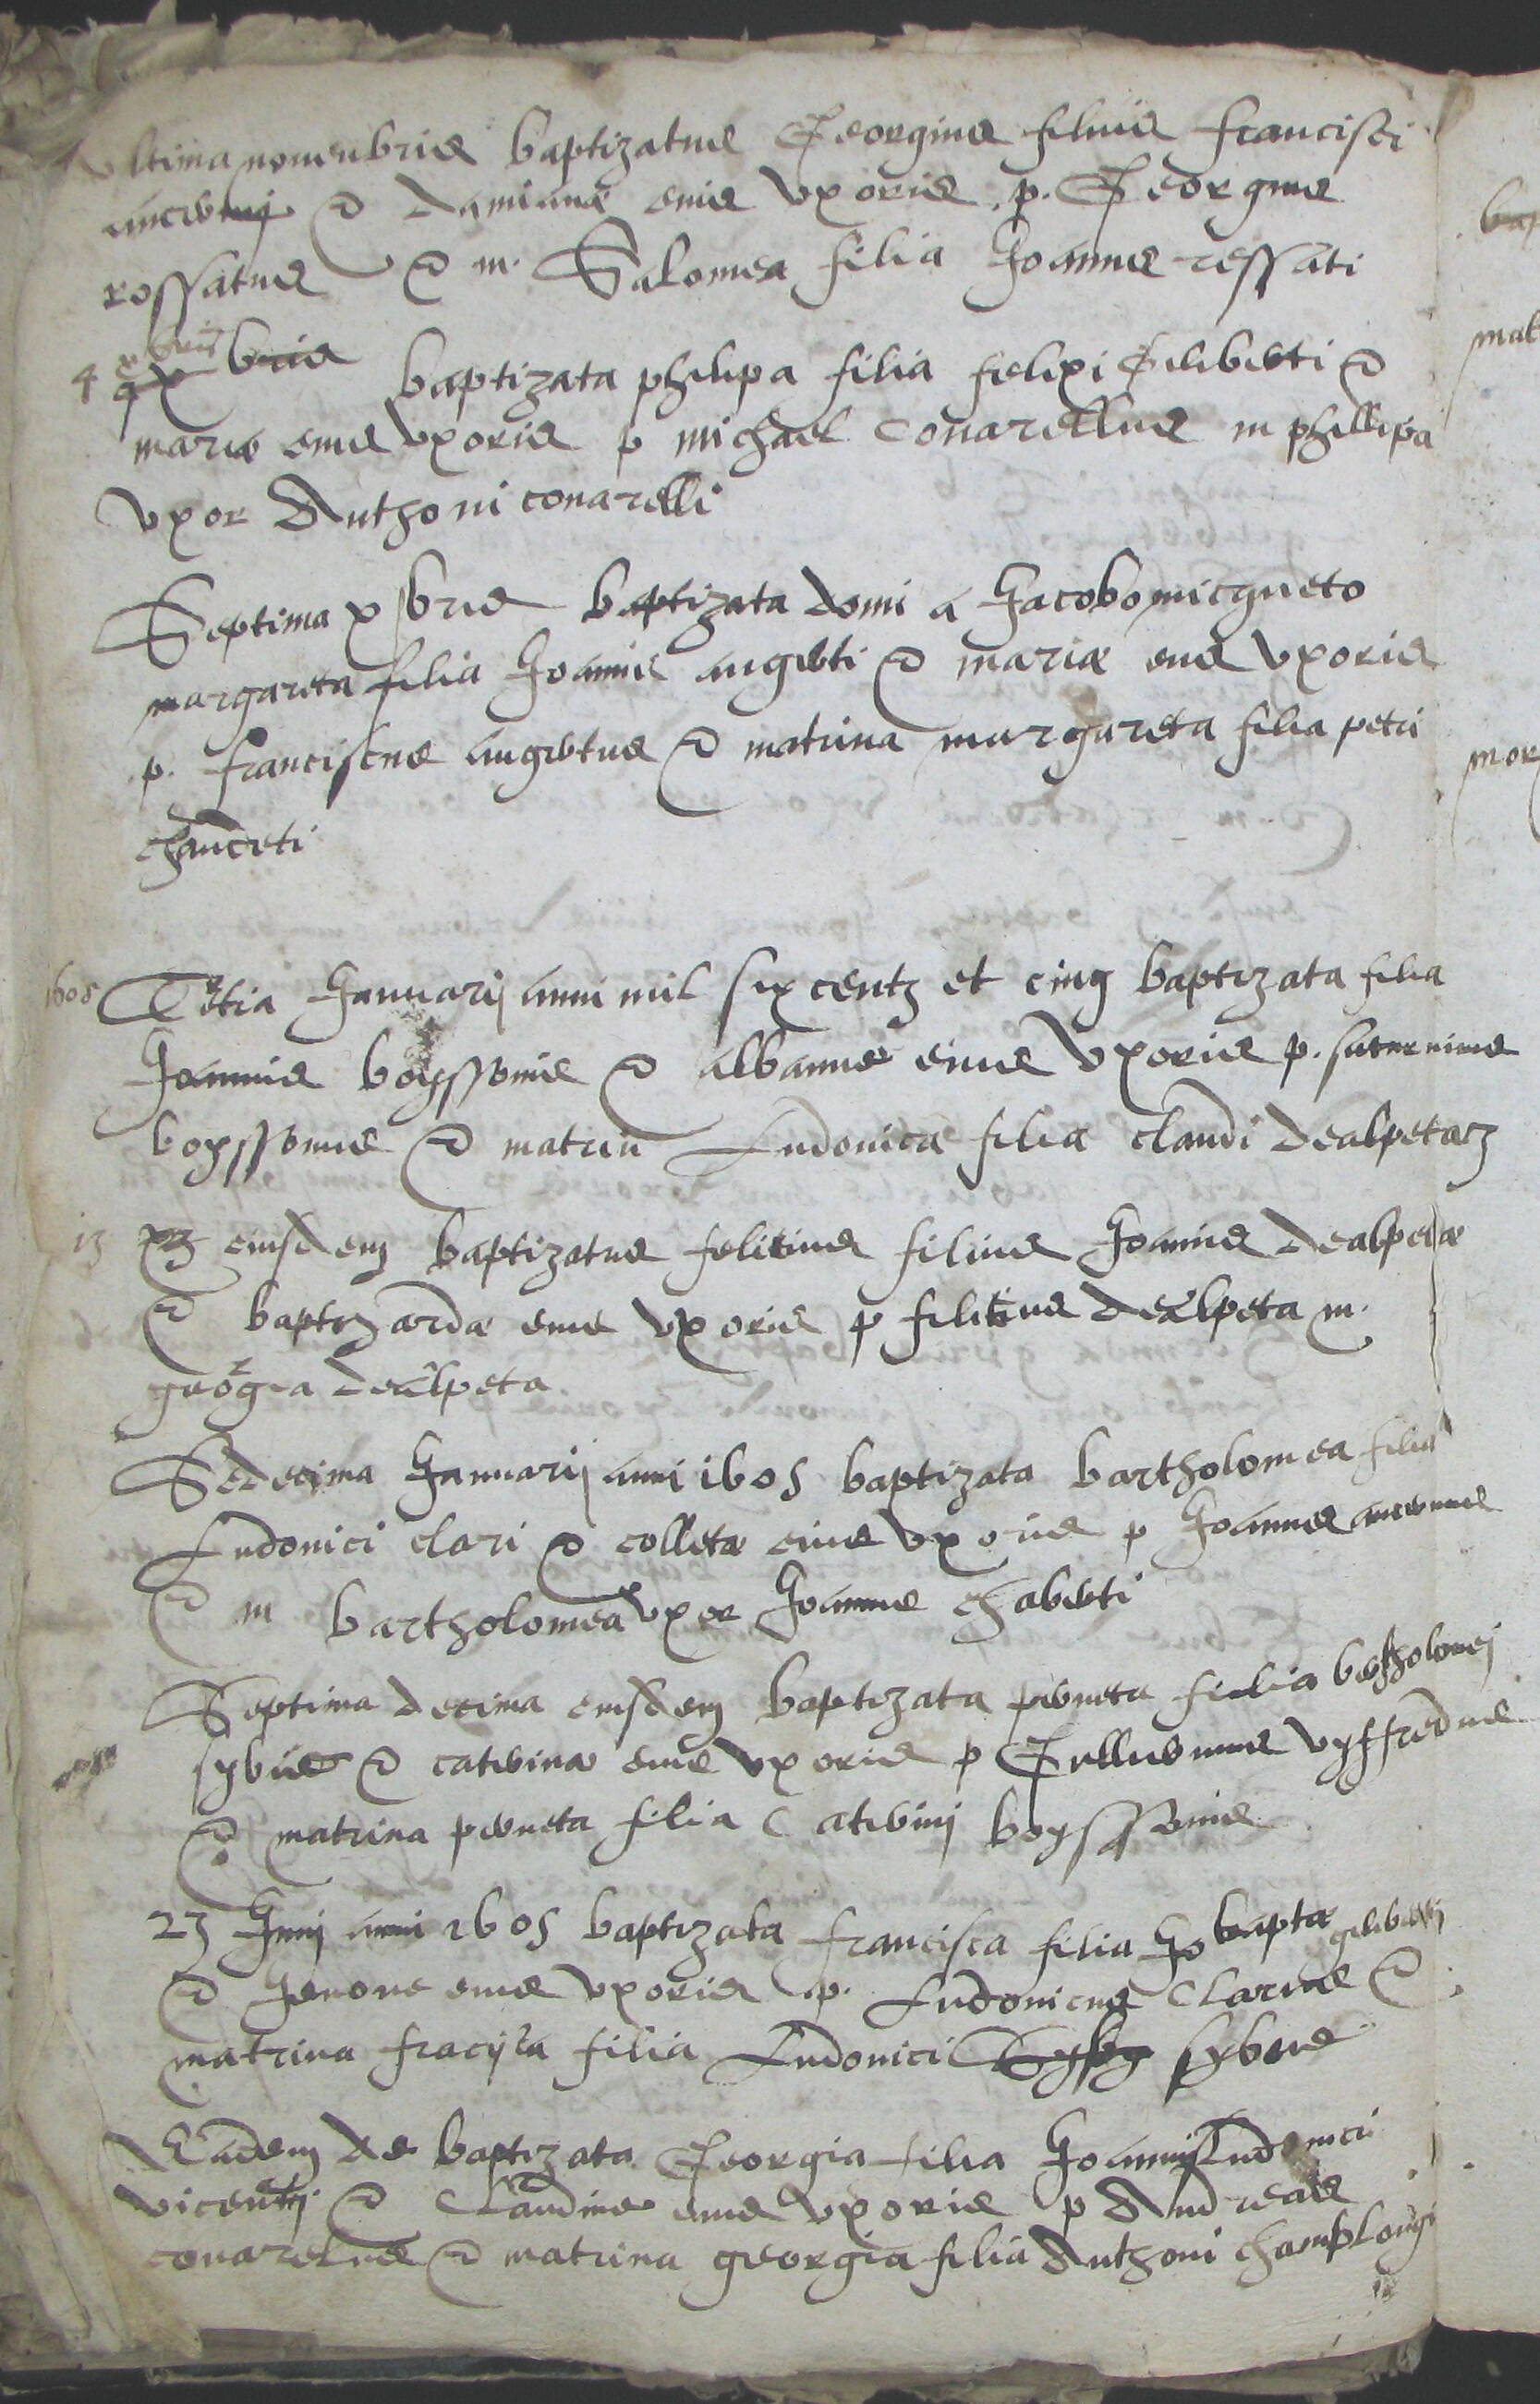 ultima novenbris baptizatus Georgius filius francisci
& damianæ eius uxoris . p. Georgius
rossatus & m. Salomea filia Joannis rossati
4 xbris baptizata philipa filia felixi Giliberti &
mariæ eius uxoris p michael conarellus m phillipa
uxor Anthoni conarelli
Septima xbris baptizata domi a Jacobo micgneto
margareta filia Joannis angerti & mariæ eius uxoris
p. franciscus angertus & matrina margareta filia petri
chanceti
1605 Tertia Januarij anni mil six centz et cinq baptizata filia
Joannis boyssonis & albannæ eius uxoris p. saturninus
boyssonus & matrin Ludovica filia claudi dealpetaz
13 eiusdem baptizatus felicius filius Joannis dealpetæ
& baptizardæ eius uxoris p felicius dealpeta m.
georgia dealpeta
Sedecima Januarij anni 1605 baptizata bartholomea filia
Ludovici clari & colletæ eius uxoris p Joannes
& m bartholomea uxor Joannis chaberti
Septima decima eiusdem baptizata perneta filia bertholomej
sybue & caterinæ eius uxoris p Gullermus vyffredus
& matrina perneta filia Caterinj boyssonis
23 Junij anni 1605 baptizata francisca filia Jo baptæ giliberti
& Jenone eius uxoris p. Ludovicus Clarus &
matrina fracisca filia Ludovici sybue
Eadem die baptizata Georgia filia Joannis Ludovici
vicentij & Claudinæ eius uxoris p Andreas
conarelus & matrina georgia filia Anthoni champlongi
bap
mat
mor